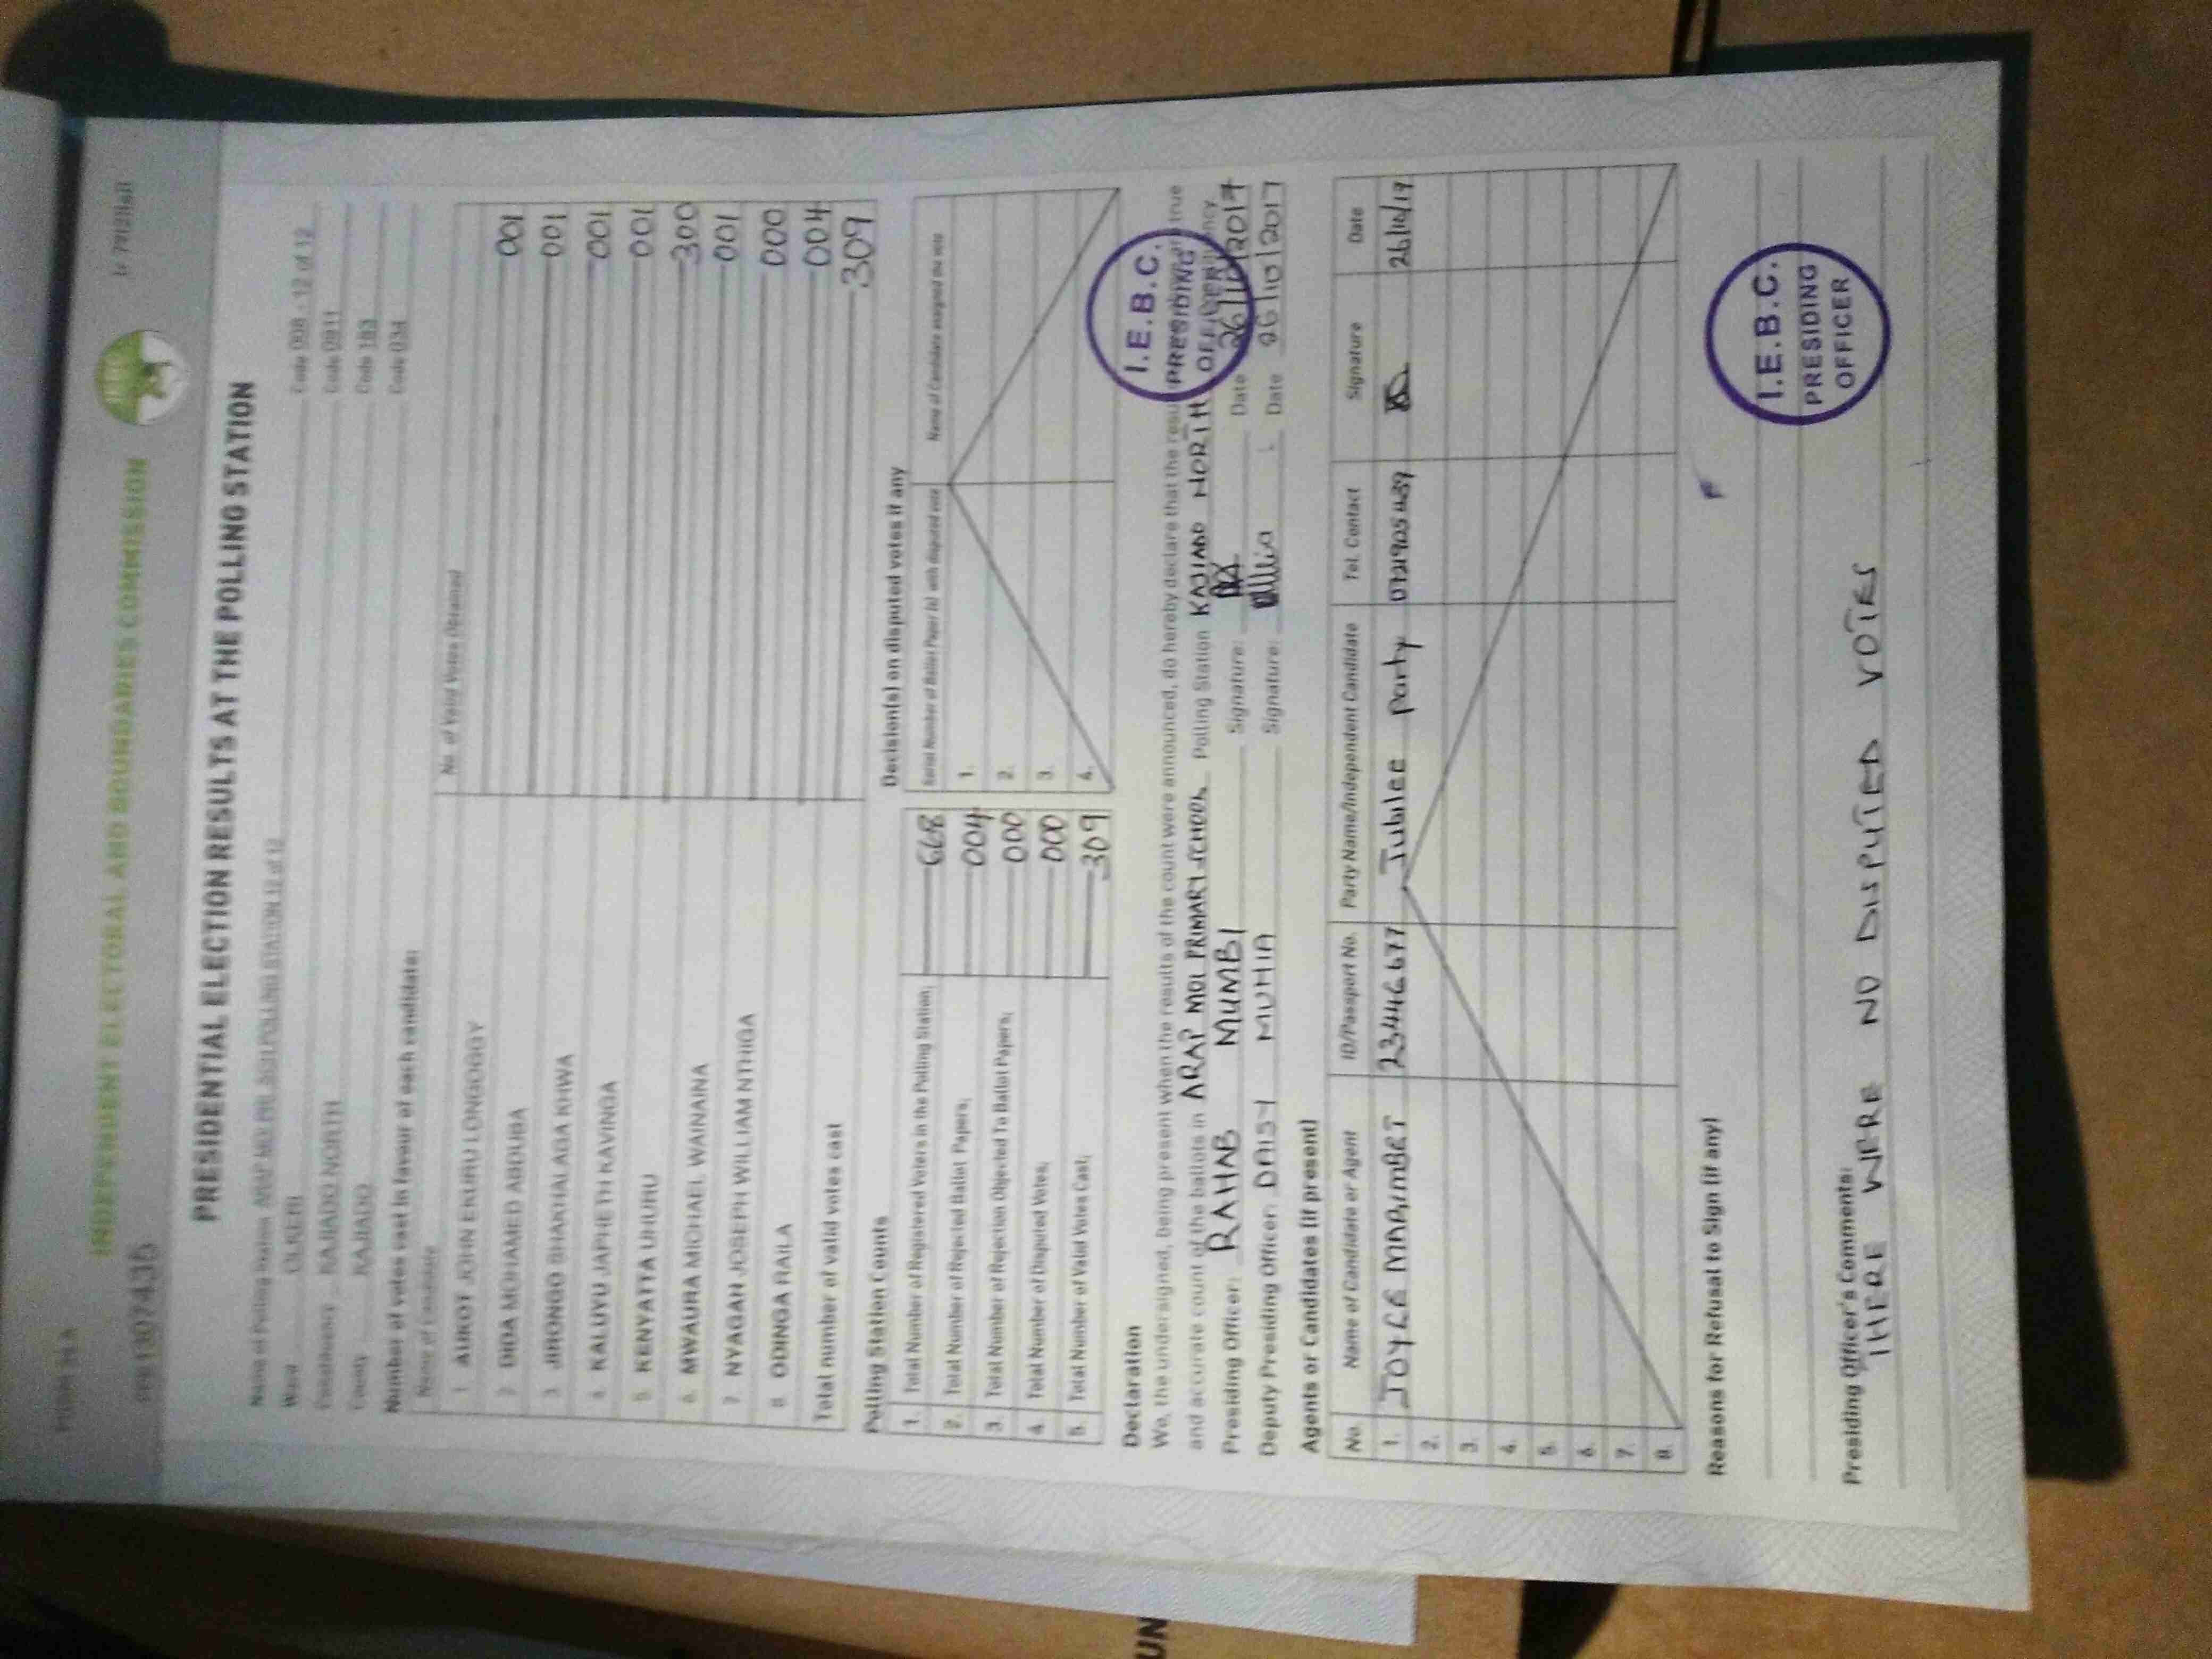 FORM 34A
INDEPENDENT ELECTORAL AND BOUNDARIES COMMISSION
PRESIDENTIAL ELECTION RESULTS AT THE POLLING STATION
Name of Polling Station ARAP MOI PRI SCH POLLING STATION 12 of 12 Code 008 - 12 of 12
Ward OLKERI Code 0911
Constituency KAJIADO NORTH Code 183
County KAJIADO Code 034
Number of votes cast in favour of each candidate:
Name of Candidate No. of Valid Votes Obtained
1 AUKOT JOHN EKURU LONGOGGY 001
2 DIDA MOHAMED ABDUBA 001
3 JIRONGO SHAKHALAGA KHWA 001
4 KALUYU JAPHETH KAVINGA 001
5 KENYATTA UHURU 300
6 MWAURA MICHAEL WAINAINA 001
7 NYAGAH JOSEPH WILLIAM NTHIGA 000
8 ODINGA RAILA 004
Total number of valid votes cast 309
Polling Station Counts
1. Total Number of Registered Voters in the Polling Station; 668
2. Total Number of Rejected Ballot Papers; 004
3. Total Number of Rejection Objected To Ballot Papers; 000
4. Total Number of Disputed Votes; 000
5. Total Number of Valid Votes Cast; 309
Decision(s) on disputed votes if any
Serial Number of Ballot Paper (s) with disputed vote Name of Candidate assigned the vote
1.
2.
3.
4.
Declaration
We, the undersigned, being present when the results of the count were announced, do hereby declare that the results true
and accurate count of the ballots in ARAP MOI PRIMARY SCHOOL Polling Station KAJIADO NORTH
Presiding Officer: RAHAB MUMBI Signature: Date 26/10/2017
Deputy Presiding Officer: DAISY MUHIA Signature: Date 26/10/2017
I.E.B.C.
PRESIDING
OFFICER
Agents or Candidates (if present)
No. Name of Candidate or Agent ID/Passport No. Party Name/Independent Candidate Tel. Contact Signature Date
1. 23446677 Jubilee Party 26/10/17
2.
3.
4.
5.
6.
7.
8.
Reasons for Refusal to Sign (if any)
I.E.B.C.
PRESIDING
OFFICER
Presiding Officer's Comments:
THERE WERE NO DISPUTED VOTES
UN